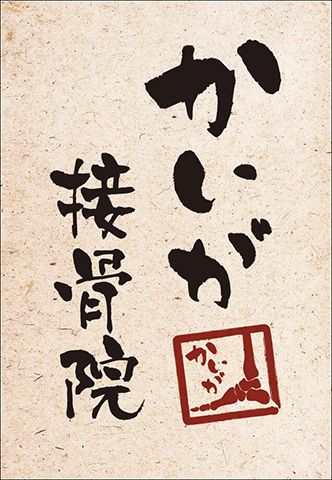 かいが
接骨院
かいが